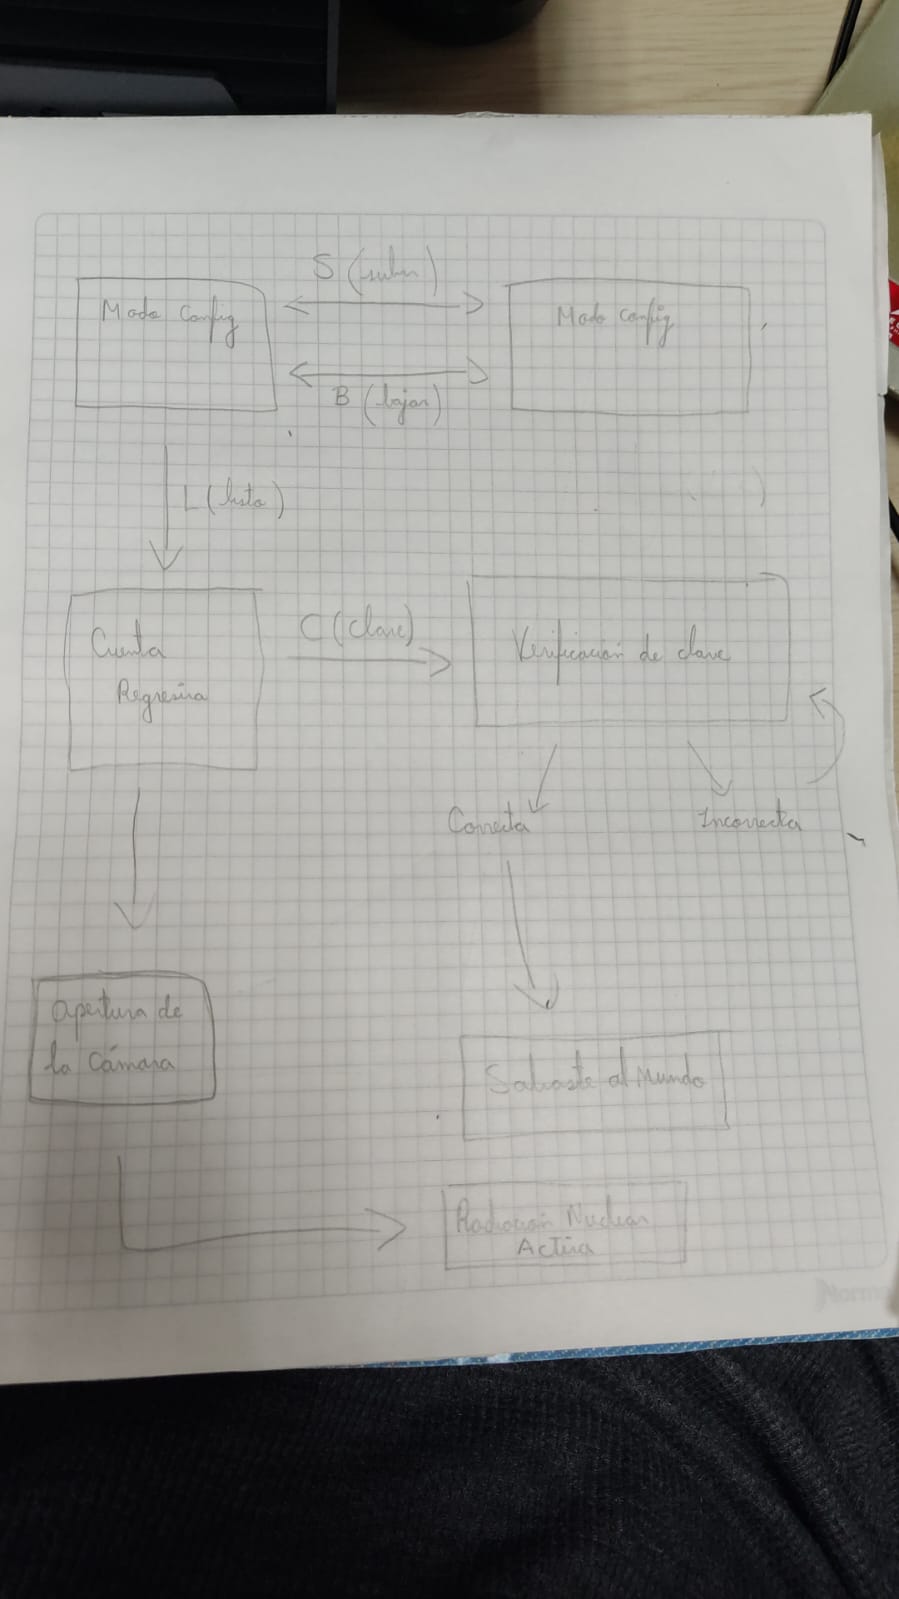 S (subir)
Modo Config
Modo Config
B (bajar)
L (listo)
C (Clave)
Cuenta
Regresiva
Verificación de clave
Correcta
Incorrecta
apertura de
la Cámara
Salvaste al Mundo
Radiación Nuclear
Activa
Norma